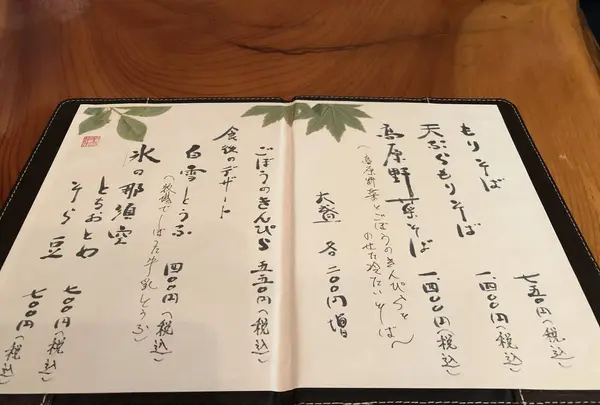 もりそば 七五〇円(税込)
天ぷらもりそば 一、四〇〇円(税込)
高原野菜そば 一、四〇〇円(税込)
(高原野菜とごぼうのきんぴらを
のせた冷たいそば〜)
大盛 各二〇〇円増
ごぼうのきんぴら 五五〇円(税込)
食後のデザート
白雪とうふ 四〇〇円(税込)
(牧場でしぼった牛乳とうふ)
氷の那須雪
とちおとめ 七〇〇円(税込)
そら豆 七〇〇円(税込)